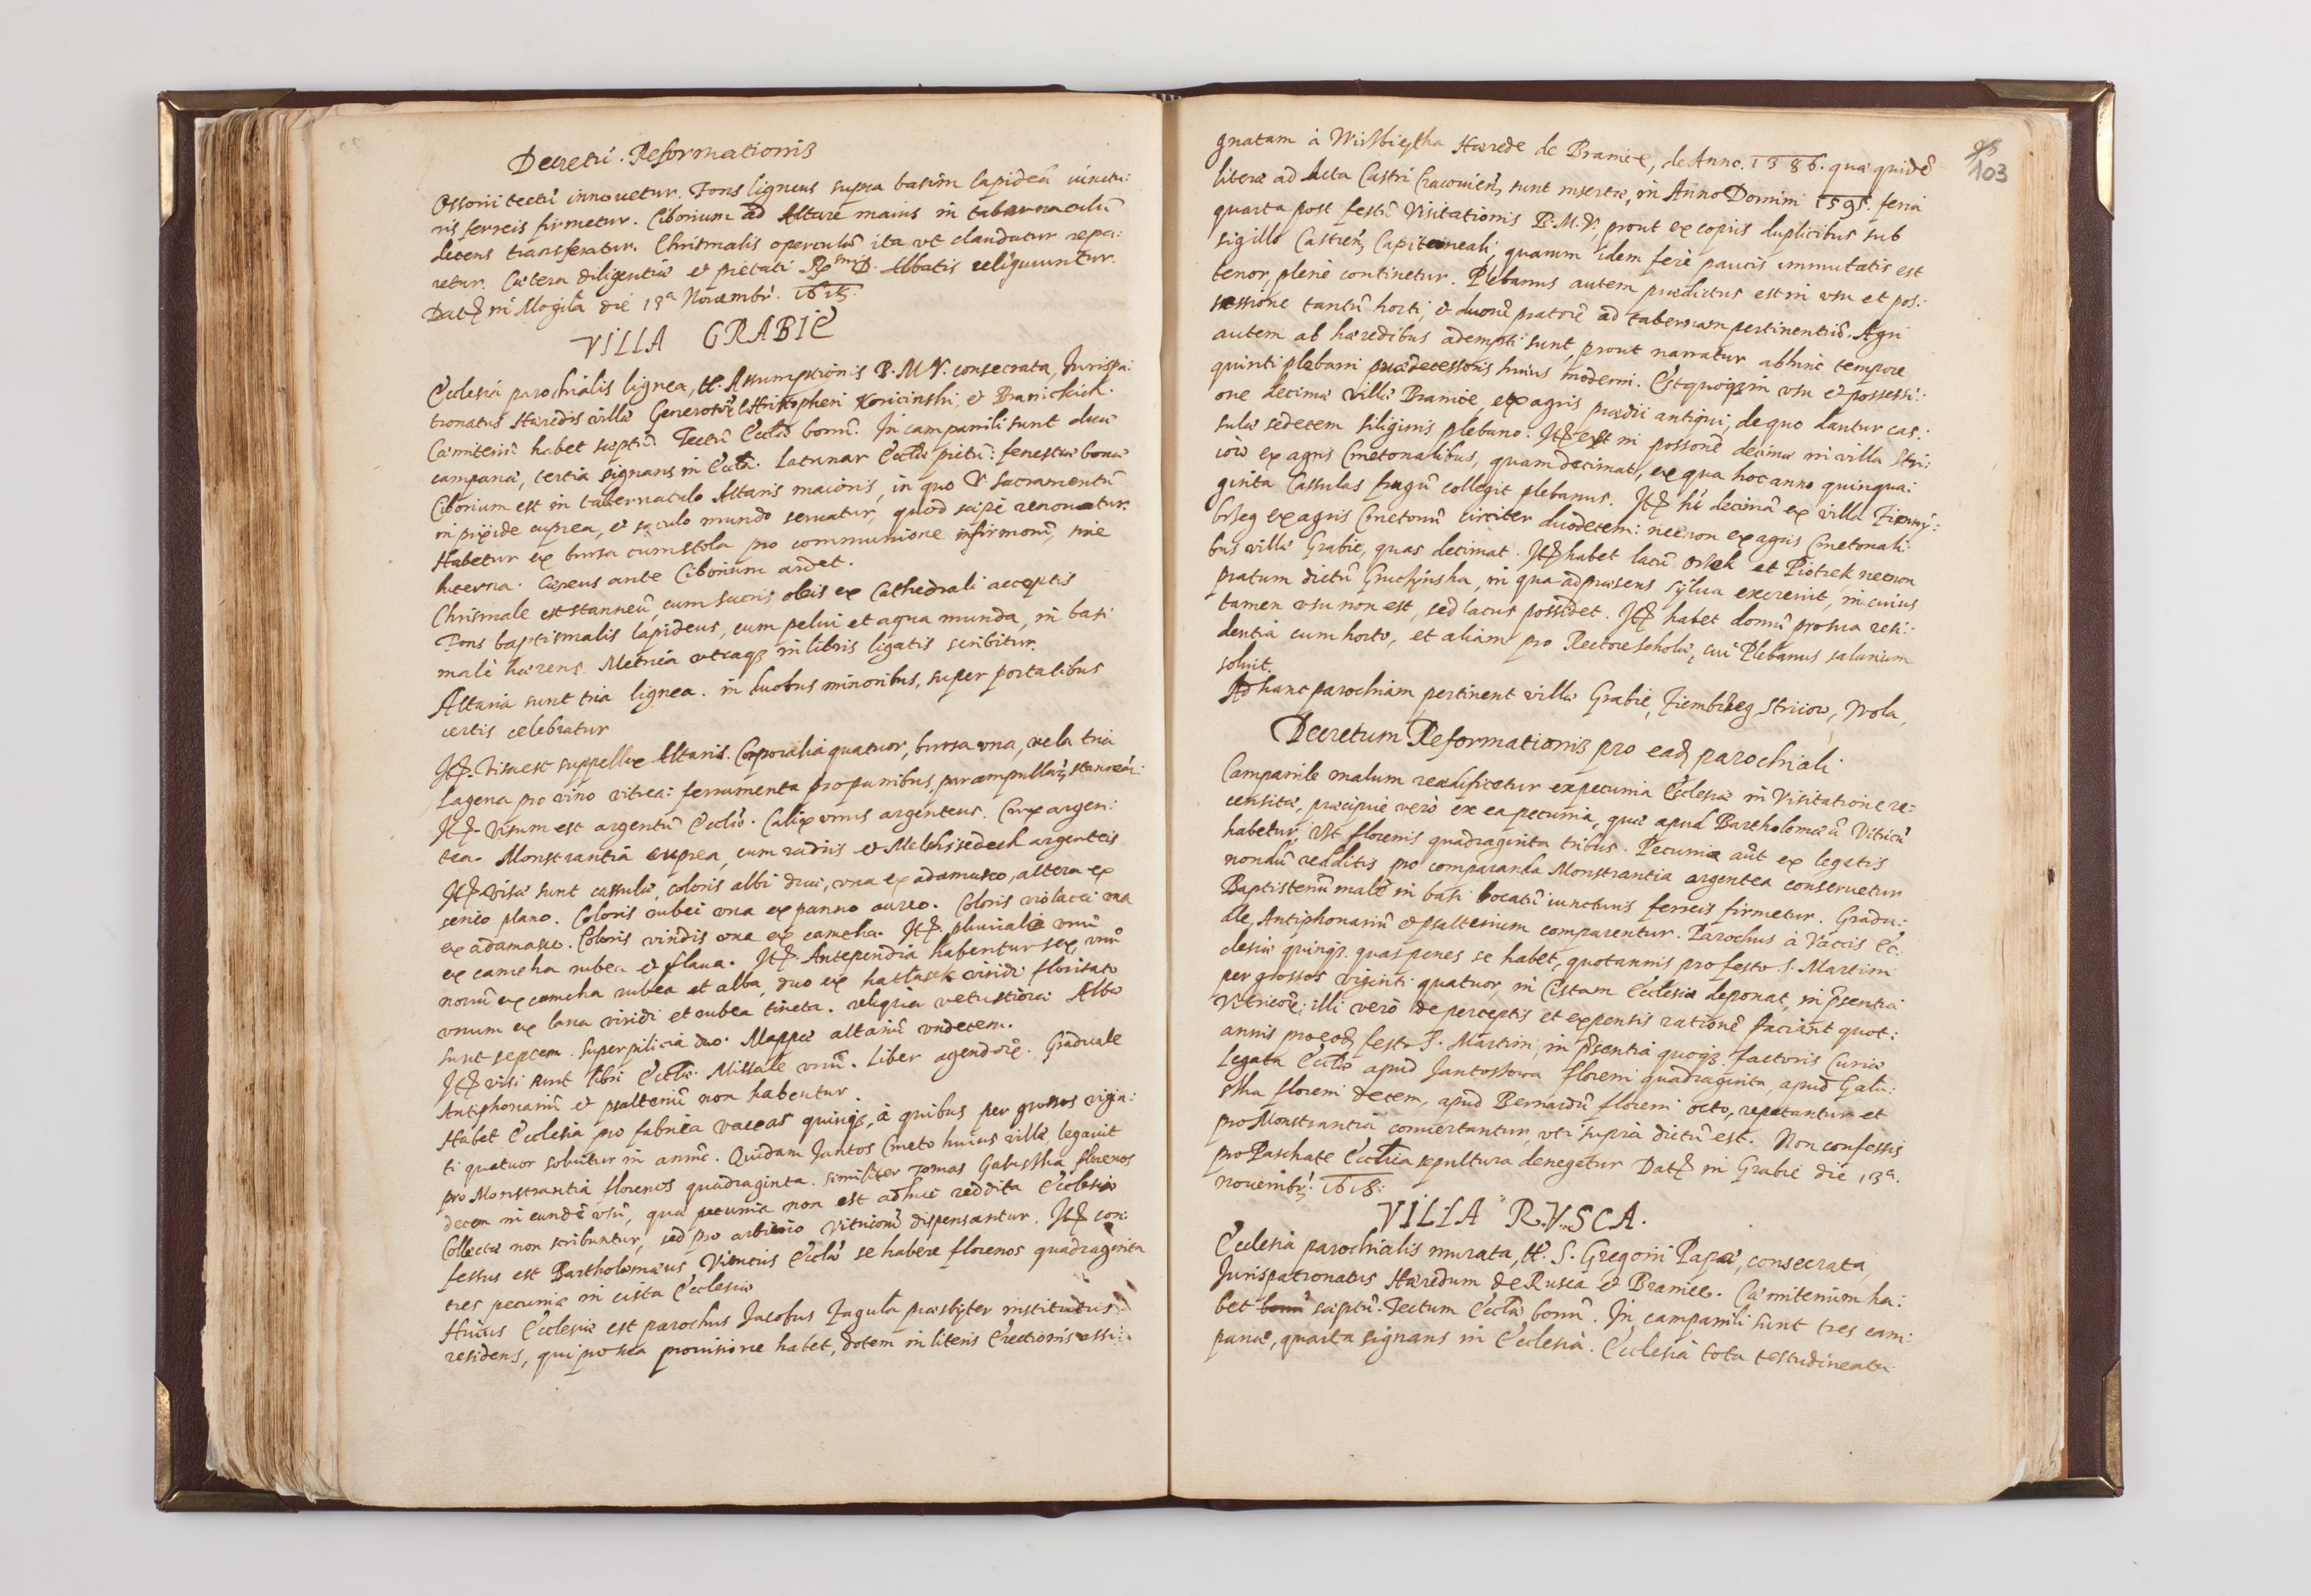 Decretũ Reformationis
Ossorij tectũ innovetur. Fons ligneus supra basim lapideã iunctu:
ris ferreis firmetur. Ciborium ad Altare maius in tabernaculũ
decens transferatur. Chrismalis operculũ ita vt claudatur repa:
retur. Cætera diligentiæ et pietati Rx mi D. Abbatis relinquuntur.
Dat in Mogila die 13a Novembr.
VILLA GRABIE
Ecclesia parochialis lignea, tt. Assumptionis B. M. V. consecrata, Jurispa:
tronatus Hæredis villæ Generosor Christopheri Koricinski, et Branickich.
Cæmiteriũ habet sæptũ. Tectũ Eccliæ bonũ. In campanili sunt duæ
campanæ, tertia signans in Eccla. Lacunar Eccliæ pictũ: fenestræ bonæ
Ciborium est in tabernaculo Altaris maioris, in quo V. Sacramentũ
in pixide cuprea, et sacculo mundo servatur, quod sæpè renovatur.
Habetur ex bursa cum stola pro communione infirmorũ, sine
lucerna. Cæreus ante Ciborium ardet.
Chrismale est stanneũ, cum sacris oleis ex Cathedrali acceptis
Fons baptismalis lapideus, cum pelui et aqua munda, in basi
malè hærens. Metrica vtraq; in libris ligatis scribitur.
Altaria sunt tria lignea. in duobus minoribus, super portalibus
certis celebratur
Jt. Visa est suppellex Altaris. Corporalia quatuor, bursa vna, vela tria
Lagena pro vino vitrea: ferramenta pro panibus, par ampullar stannear:
Jt. Visum est argentũ Eccliæ. Calix vnus argenteus. Crux argen:
tea. Monstrantia cuprea, cum radiis et Melchisedech argenteis
Jt. Visæ sunt casulæ, coloris albi duæ, vna ex adamasco, altera ex
serico plano. Coloris rubei vna ex panno aureo. Coloris violacei vna
ex adamasco. Coloris viridis vna ex camcha. Jt. pluviale vnũ
ex camcha rubea et flava. Jt. Antependia habentur sex, vnũ
novũ ex camcha rubea et alba, duo ex hatłasek viridi florisato
vnum ex lana viridi et rubea tincta. reliqua vetustiora Albæ
sunt septem. Superpilicia duo. Mappæ altariũ vndecem.
Jt. visi sunt libri Eccliæ Missale vnũ. Liber agendorũ. Graduale
Antiphonariũ et psalteriũ non habentur.
Habet Ecclesia pro fabrica vaccas quinq;, à quibus per grossos vigin:
ti quatuor solvitur in annũ. Quidam Jantos Cmeto huius villæ, legavit
pro Monstrantia florenos quadraginta. similiter Tomas Galuszka florenos
decem in eundẽ vsũ, quæ pecunia non est adhuc reddita Ecclesiæ
Collectæ non scribuntur, sed pro arbitrio Vitricorũ dispensantur. Jt. con:
fessus est Bartholomæus Vitricus Eccliæ se habere florenos quadraginta
tres pecuniæ in cista Ecclesiæ
Huius Ecclesiæ est parochus Jacobus Zagula præsbyter institutus
residens, qui pro sua provisione habet, dotem in literis Erectionis assi:
103
gnatam à Wirzbięthа Hærede de Branice, de Anno. 1386. quæ quidẽ
literæ ad Acta Castri Cracovien sunt insertæ, in Anno Domini 1595. feria
quarta post festũ Visitationis B. M. V. prout ex copiis duplicibus sub
sigillo Castren Capitaneali, quarum idem ferè paucis immutatis est
tenor, plenè continetur. Plebanus autem prædictus est in vsu et pos:
sessione tantũ horti, et duorũ pratorũ ad tabernam pertinentiũ. Agri
autem ab hæredibus adempti sunt, prout narratur abhinc tempore
quinti plebani prædecessoris huius moderni. Est quoq; in vsu et possessi:
one decimæ villæ Branice, ex agris prædii antiqui, de quo dantur cas:
sulæ sedecem siliginis plebano. Jt. est in possone decimæ in villa Stri:
iow ex agris Cmetonalibus, quam decimat, ex qua hoc anno quinqua:
ginta Cassulas frugũ collegit plebanus. Jt. hẽt decimã ex villa
brzeg ex agris Cmetonũ circiter duodecem: necnon ex agris Cmetonali:
bus villæ Grabie, quas decimat. Jt. habet lacũ et Piotrek necnon
pratum dictũ Gruczynska, in qua ad præsens sylua excrevit, in cuius
tamen vsu non est, sed lacus possidet. Jt. habet domũ pro sua resi:
dentia cum horto, et aliam pro Rectore scholæ, cui Plebanus salarium
solvit.
Ad hanc parochiam pertinent villæ Grabie, Ziembrzeg, Striiow, Wola,
Decretum Reformationis pro ead parochiali
Campanile malum reædificetur ex pecunia Ecclesiæ in Visitatione re:
censita, præcipuè verò ex ea pecunia, quæ apud Bartholomæũ Vitricũ
habetur, vt florenis quadraginta tribus. Pecuniæ aũt ex legatis
nondũ redditis pro comparanda Monstrantia argentea conservetur
Baptisteriũ malè in basi locatũ iuncturis ferreis firmetur. Gradu:
ale, Antiphonariũ et psalterium comparentur. Parochus à vaccis Ec:
clesiæ quinq; quas penes se habet, quotannis pro festo S. Martini
per grossos viginti quatuor, in Cistam Ecclesiæ deponat, in pñsentia
Vitricorũ; illi verò de perceptis et expensis rationẽ faciant quot:
annis pro eod festo S. Martini, in pñsentia quoq; factoris Curiæ
Legata Eccliæ apud Jantoskowa floreni quadraginta, apud Galu:
szka floreni decem, apud Bernardũ floreni octo, repetantur et
pro Monstrantia convertantur, vti supra dictũ est. Non confessis
pro Paschate Ecclica sepultura denegetur Dat in Grabie die 13a.
novembr. 1618.
VILLA RVSCA.
Ecclesia parochialis murata, tt. S. Gregorii Papæ, consecrata,
Jurispatronatus Hæredum de Rusca et Branice. Cæmiterium ha:
bet bonũ sæptũ. Tectum Eccliæ bonũ. In campanili sunt tres cam:
panæ, quarta signans in Ecclesia. Ecclesia tota testudineata